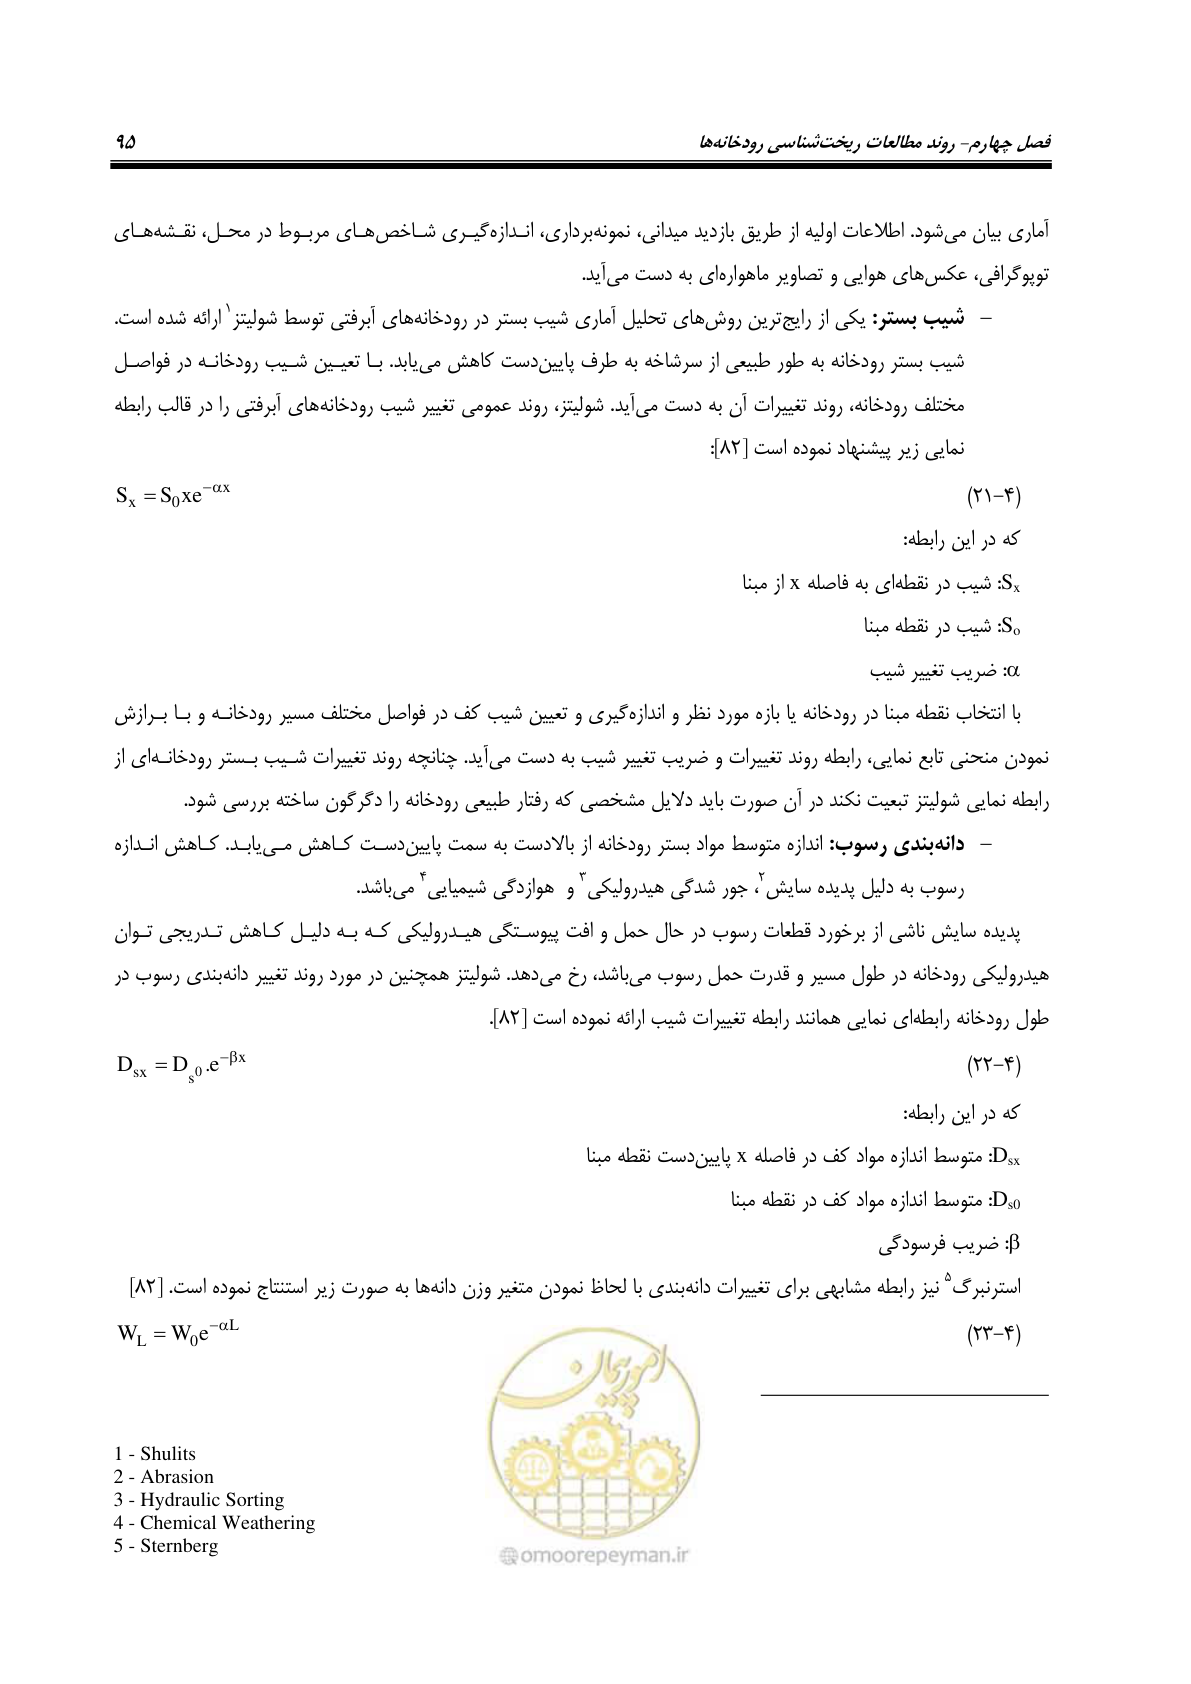 فصل چهارم- روند مطالعات ریخت‌شناسی رودخانه‌ها ۹۵
آماری بیان می‌شود. اطلاعات اولیه از طریق بازدید میدانی، نمونه‌برداری، انـدازه‌گیـری شـاخص‌هـای مربـوط در محـل، نقـشه‌هـای
توپوگرافی، عکس‌های هوایی و تصاویر ماهواره‌ای به دست می‌آید.
– شیب بستر: یکی از رایج‌ترین روش‌های تحلیل آماری شیب بستر در رودخانه‌های آبرفتی توسط شولیتز۱ ارائه شده است.
شیب بستر رودخانه به طور طبیعی از سرشاخه به طرف پایین‌دست کاهش می‌یابد. بـا تعیـین شـیب رودخانـه در فواصـل
مختلف رودخانه، روند تغییرات آن به دست می‌آید. شولیتز، روند عمومی تغییر شیب رودخانه‌های آبرفتی را در قالب رابطه
نمایی زیر پیشنهاد نموده است [۸۲]:
(۴-۲۱) Sx = S0xe^−αx
که در این رابطه:
Sx: شیب در نقطه‌ای به فاصله x از مبنا
So: شیب در نقطه مبنا
α: ضریب تغییر شیب
با انتخاب نقطه مبنا در رودخانه یا بازه مورد نظر و اندازه‌گیری و تعیین شیب کف در فواصل مختلف مسیر رودخانـه و بـا بـرازش
نمودن منحنی تابع نمایی، رابطه روند تغییرات و ضریب تغییر شیب به دست می‌آید. چنانچه روند تغییرات شـیب بـستر رودخانـه‌ای از
رابطه نمایی شولیتز تبعیت نکند در آن صورت باید دلایل مشخصی که رفتار طبیعی رودخانه را دگرگون ساخته بررسی شود.
– دانه‌بندی رسوب: اندازه متوسط مواد بستر رودخانه از بالادست به سمت پایین‌دسـت کـاهش مـی‌یابـد. کـاهش انـدازه
رسوب به دلیل پدیده سایش۲، جور شدگی هیدرولیکی۳ و هوازدگی شیمیایی۴ می‌باشد.
پدیده سایش ناشی از برخورد قطعات رسوب در حال حمل و افت پیوسـتگی هیـدرولیکی کـه بـه دلیـل کـاهش تـدریجی تـوان
هیدرولیکی رودخانه در طول مسیر و قدرت حمل رسوب می‌باشد، رخ می‌دهد. شولیتز همچنین در مورد روند تغییر دانه‌بندی رسوب در
طول رودخانه رابطه‌ای نمایی همانند رابطه تغییرات شیب ارائه نموده است [۸۲].
(۴-۲۲) Dsx = Ds0.e^−βx
که در این رابطه:
Dsx: متوسط اندازه مواد کف در فاصله x پایین‌دست نقطه مبنا
Ds0: متوسط اندازه مواد کف در نقطه مبنا
β: ضریب فرسودگی
استرنبرگ۵ نیز رابطه مشابهی برای تغییرات دانه‌بندی با لحاظ نمودن متغیر وزن دانه‌ها به صورت زیر استنتاج نموده است. [۸۲]
(۴-۲۳) WL = W0e^−αL
امور پیمان
1 - Shulits
2 - Abrasion
3 - Hydraulic Sorting
4 - Chemical Weathering
5 - Sternberg
omoorepeyman.ir